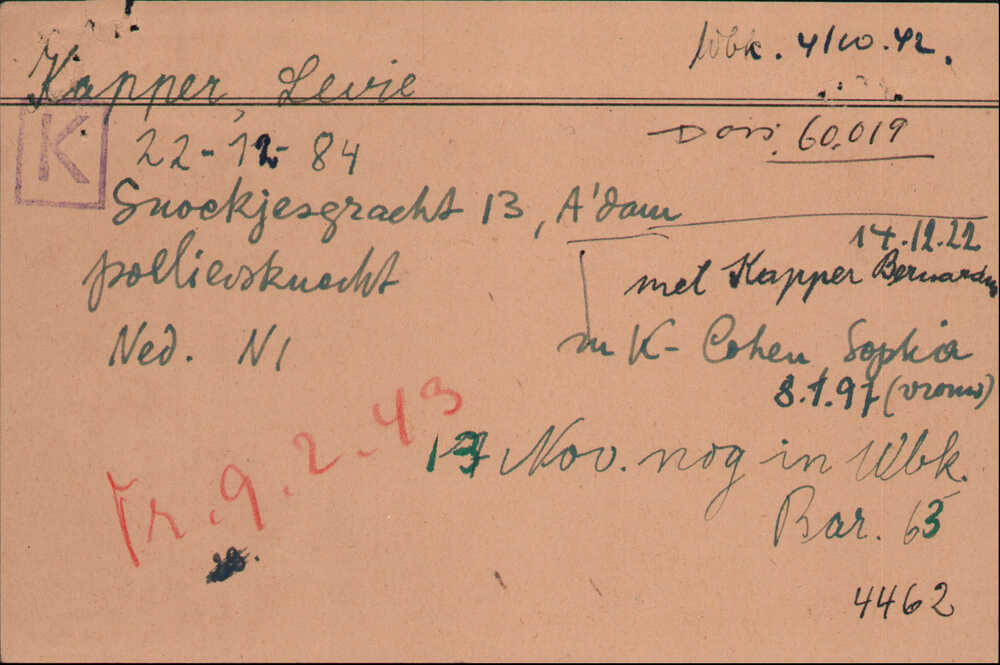 Wbk. 4/10.42.
Kapper, Levie
K
22-12-84
Doss. 60.019
Snoekjesgracht 13, A'dam
14.12.22
poelierksnecht
met Kapper Bernardus
Ned. NI
m K- Cohen Sophia
8.1.97 (vrouw)
Tr. 9.2.43
13 Nov. nog in Wbk.
Bar. 63
4462